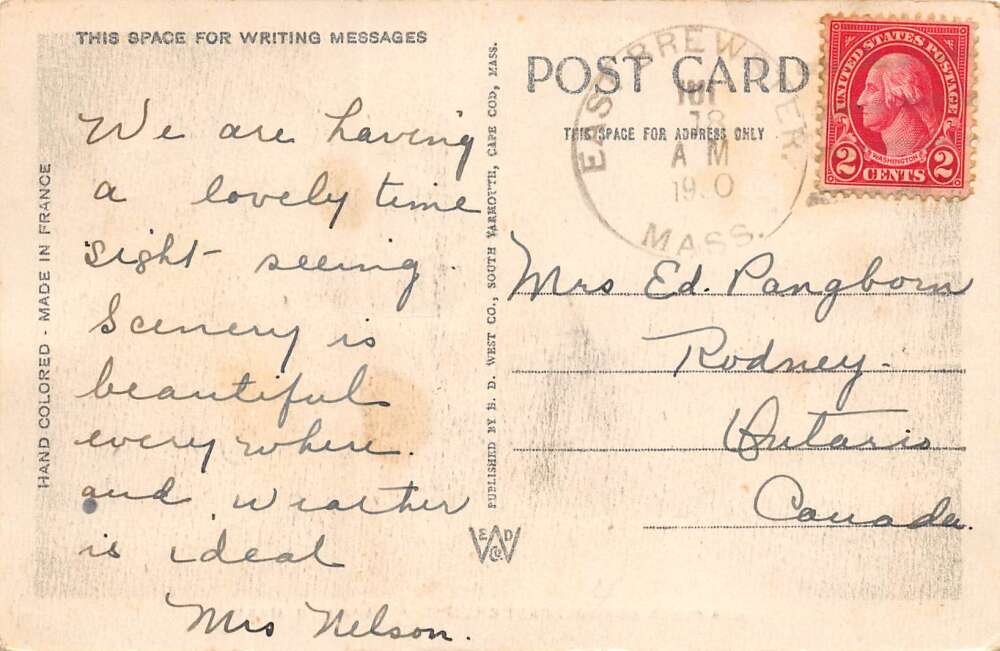 THIS SPACE FOR WRITING MESSAGES
We are having
a lovely time
sight seeing.
Scenery is
beautiful
every where.
and weather
is ideal
Mrs Nelson.
HAND COLORED - MADE IN FRANCE
PUBLISHED BY E. D. WEST CO., SOUTH YARMOUTH, CAPE COD, MASS.
E D
W
Co
POST CARD
THIS SPACE FOR ADDRESS ONLY
EAST BREWSTER.
18
A M
MASS.
UNITED STATES POSTAGE
WASHINGTON
2 CENTS 2
Mrs Ed. Pangborn
Rodney.
Ontario
Canada.